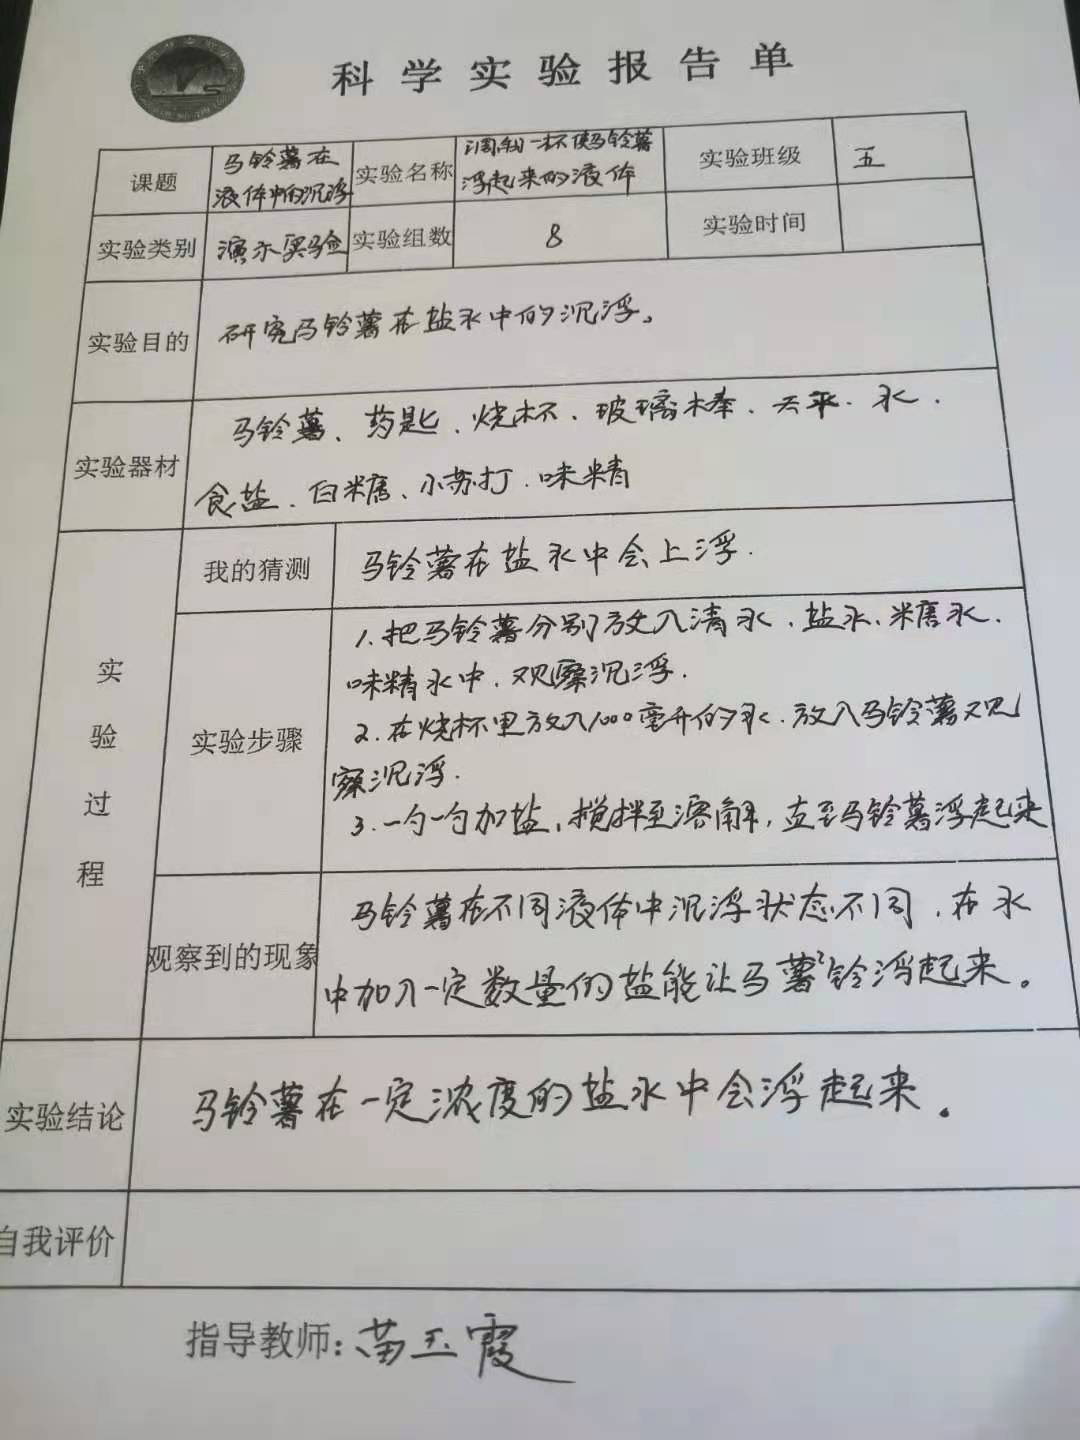 科学实验报告单
课题 马铃薯在液体中的沉浮 实验名称 调制一杯使马铃薯浮起来的液体 实验班级 五
实验类别 演示实验 实验组数 8 实验时间
实验目的 研究马铃薯在盐水中的沉浮。
实验器材 马铃薯、药匙、烧杯、玻璃棒、天平、水、
食盐、白糖、小苏打、味精
实验过程
我的猜测 马铃薯在盐水中会上浮.
实验步骤
1.把马铃薯分别放入清水、盐水、糖水、
味精水中,观察沉浮.
2.在烧杯里放入1000毫升的水.放入马铃薯观
察沉浮.
3.一勺一勺加盐,搅拌至溶解,直至马铃薯浮起来
观察到的现象
马铃薯在不同液体中沉浮状态不同,在水
中加入一定数量的盐能让马薯铃浮起来。
实验结论 马铃薯在一定浓度的盐水中会浮起来.
自我评价
指导教师:苗玉霞